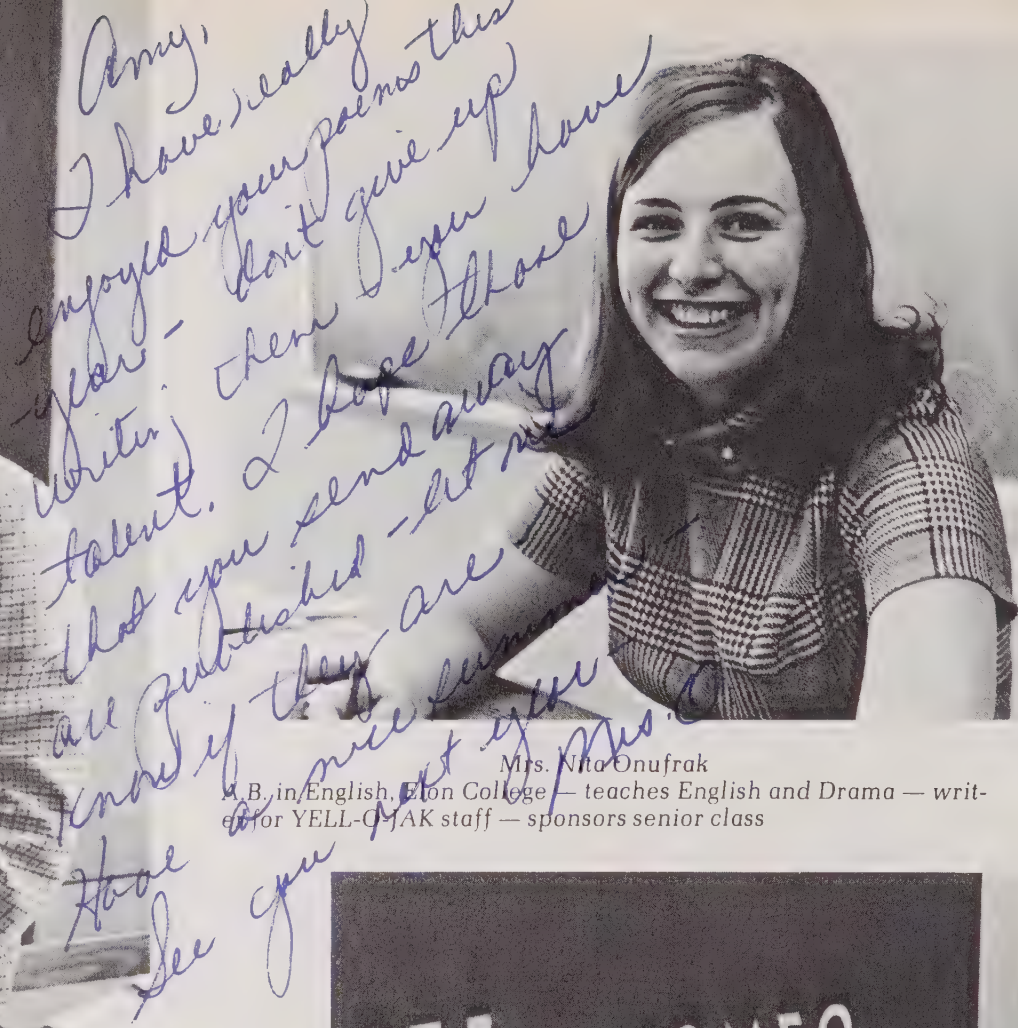 Amy,
I have really
enjoyed your poems this
year - don't give up
writing them, you have
talent. I hope those
that you send away
are published - let me
know if they are -
Have a nice summer -
See you next year
Mrs. O
Mrs. Nita Onufrak
A.B. in English, Elon College — teaches English and Drama — writ-
er for YELL-O-JAK staff — sponsors senior class